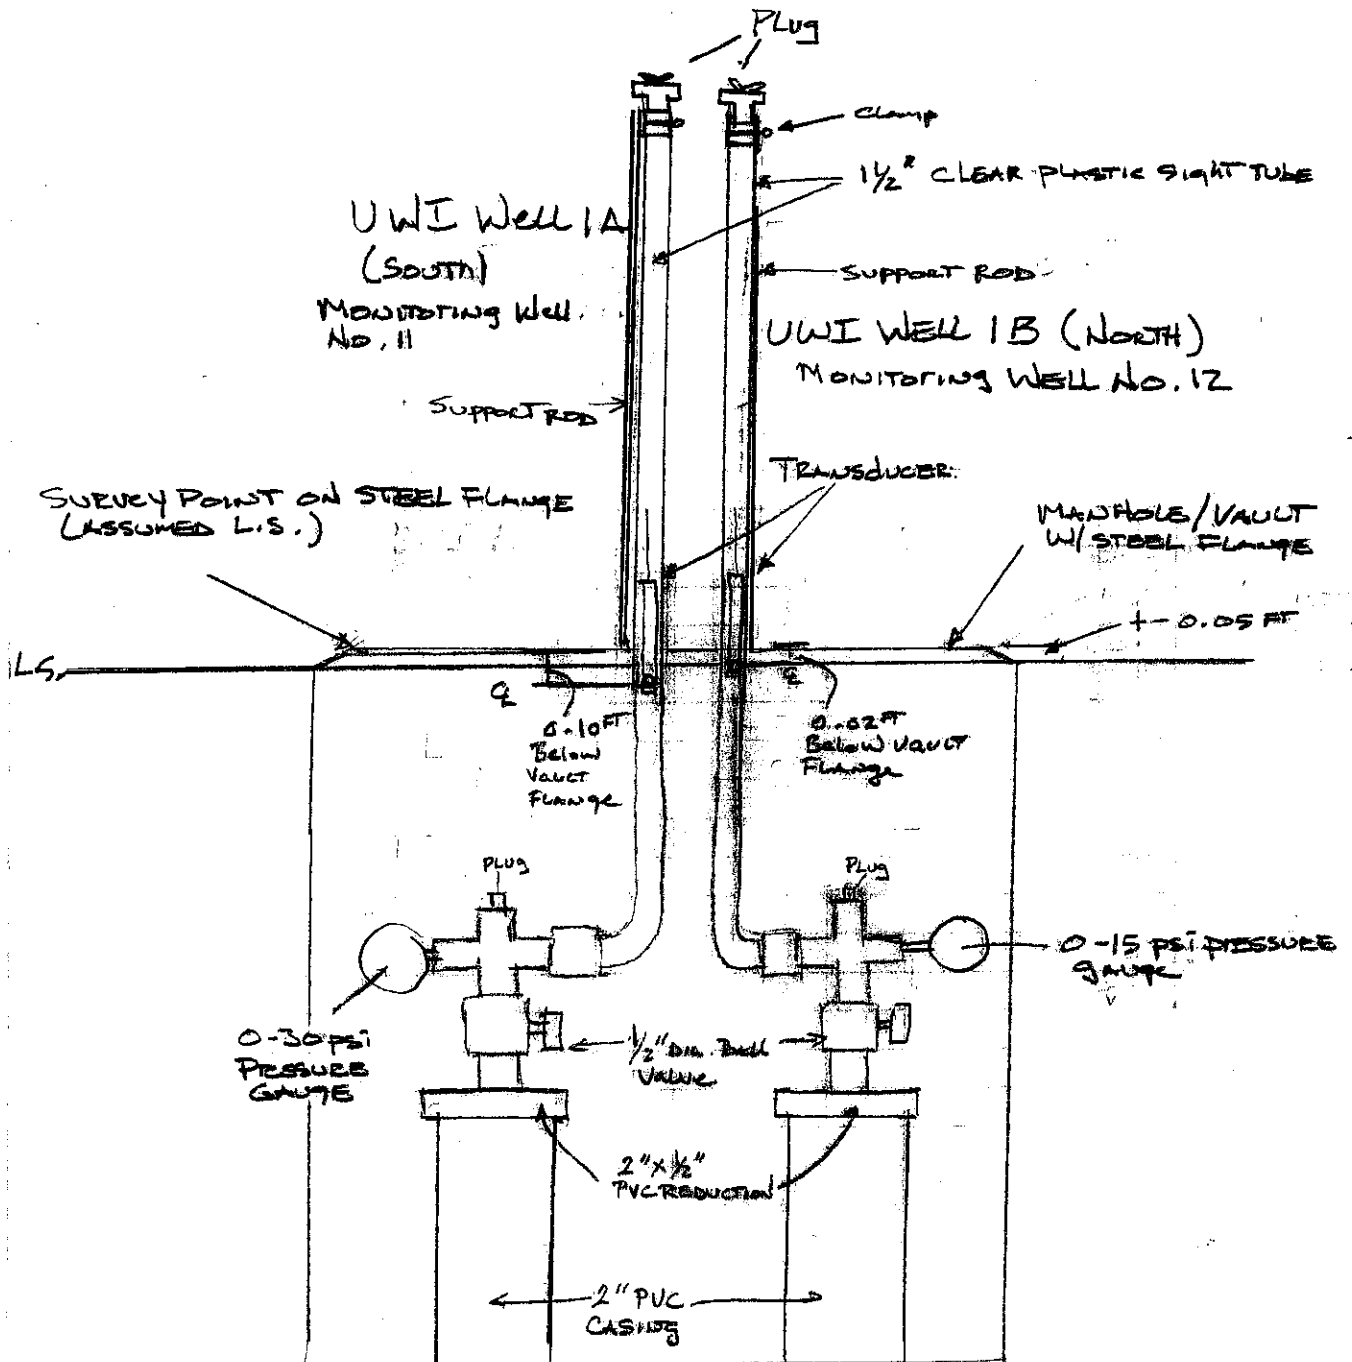 PLug
Clamp
1½" CLEAR PLASTIC SIGHT TUBE
UWI Well 1A
(SOUTH)
MONITORING Well
No. 11
SUPPORT ROD
UWI WELL 1B (NORTH)
MONITORING WELL No. 12
SUPPORT ROD
TRANSDUCER
SURVEY POINT ON STEEL FLANGE
(ASSUMED L.S.)
MANHOLE/VAULT
W/ STEEL FLANGE
+- 0.05 FT
L.S.
℄
℄
0.10 FT
Below
Vault
Flange
0.02 FT
Below Vault
Flange
PLug
PLug
0-15 psi PRESSURE
gauge
0-30 psi
PRESSURE
GAUGE
½" Dia. Ball
Valve
2" x ½"
PVC REDUCTION
2" PVC
CASING